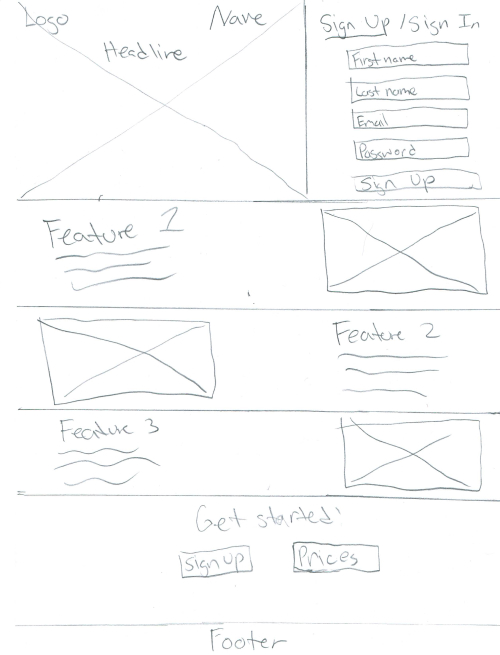 Logo
Nave
Headline
Sign Up / Sign In
First name
Last name
Email
Password
Sign Up
Feature 1
Feature 2
Feature 3
Get started!
Sign up
Prices
Footer